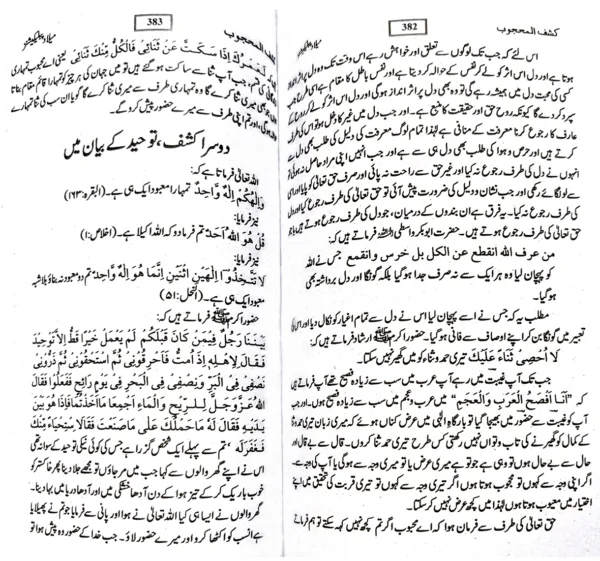 382
کشف المحجوب
اس لئے کہ جب تک لوگوں سے تعلق اور خواہش رہے اس وقت تک وہ دل پر اثر
ہوتا ہے اور دل اس اثر کو لے کر نفس کے حوالہ کر دیتا ہے اور نفس باطل کا مقام ہے اسی طرح جب
کسی کی محبت دل میں ہمیشہ رہے گی تو وہ بھی دل پر اثر انداز ہو گی اور دل اس اثر کو لے کر روح کے
سپرد کر دے گا کیونکہ روح حق اور حقیقت کا منبع ہے۔ اور جب دل میں غیر کا دخل ہو تو اس کی طرف
عارف کا رجوع کرنا معرفت کے منافی ہے لہٰذا تمام لوگ معرفت کی دلیل کی طلب بھی دل سے
کرتے ہیں اور حرص و ہوا کی طلب بھی دل ہی سے ہے اور جب انہیں اپنی مراد حاصل نہ ہوئی تو
کی طرف رجوع نہ کیا اور غیر حق سے راحت نہ پائی اور صرف حق تعالٰی کو پایا اور اسی
سے لو لگائے رکھی اور جب نشان و دلیل کی ضرورت پیش آئی تو حق تعالٰی کی طرف رجوع کیا اور دل
کی طرف رجوع نہ کیا۔ یہ فرق ہے ان بندوں کے درمیان، جو دل کی طرف رجوع ہوتے ہیں یا جو
حق تعالٰی کی طرف رجوع ہوتے ہیں۔ حضرت ابوبکر واسطی فرماتے ہیں کہ:
من عرف اللہ انقطع عن الکل بل خرس و انقمع جس نے اللہ
کو پہچان لیا وہ ہر ایک سے نہ صرف جدا ہو گیا بلکہ گونگا اور دل برداشتہ بھی
ہو گیا۔
مطلب یہ کہ جس نے اسے پہچان لیا اس نے دل سے تمام اغیار کو نکال دیا اور اس کی
تعبیر میں گونگا بن کر اپنے اوصاف سے فانی ہو گیا۔ حضور اکرم ﷺ ارشاد فرماتے ہیں کہ:
لَا اُحْصِیْ ثَنَاءً عَلَیْكَ تیری حمد و ثنا کو میں گھیر نہیں سکتا۔
جب تک آپ غیبت میں رہے آپ عرب میں سب سے زیادہ فصیح تھے آپ فرماتے
کہ "اَنَا اَفْصَحُ الْعَرَبِ وَالْعَجَمِ" میں عرب و عجم میں سب سے زیادہ فصیح ہوں۔ اور جب
آپ کو غیبت سے حضور میں بھیجا گیا تو بارگاہِ الٰہی میں عرض کناں ہوئے کہ میری زبان تیری حمد و ثنا
کے کمال کو گھیرنے کی تاب و تواں نہیں رکھتی کس طرح تیری حمد ثنا کروں۔ قال سے بے قال اور
حال سے بے حال ہوں تو وہی ہے جو تو ہے میری عرض یا تو میری وجہ سے ہو گی یا آپ کی وجہ سے۔
اگر اپنی وجہ سے کہوں تو محجوب ہوتا ہوں اگر تیری وجہ سے کہوں تو تیری قربت کی تحقیق میں اپنے
اختیار میں معیوب ہوتا ہوں لہٰذا میں کچھ عرض نہیں کر سکتا۔
حق تعالٰی کی طرف سے فرمان ہوا کہ اے محبوب اگر تم کچھ نہیں کہہ سکتے تو ہم فرماتے
383
کشف المحجوب
لَعَمْرُكَ اِذَا سَكَتَّ عَنْ ثَنَائِیْ فَالْكُلُّ مِنْكَ ثَنَائِیْ یعنی اے محبوب تمہاری
جب آپ ثنا سے ساکت ہو گئے ہیں تو میں جہان کی ہر چیز کو تمہارا قائم مقام بناتا
میری ثنا کرے گا وہ تمہاری طرف سے میری ثنا کرے گا گویا ان سب کی ثنا تمہارے
اور تم اپنی طرف سے میرے حضور پیش کرو گے۔
دوسرا کشف، توحید کے بیان میں
اللہ تعالٰی فرماتا ہے کہ:
وَاِلٰهُكُمْ اِلٰهٌ وَّاحِدٌ تمہارا معبود ایک ہی ہے۔ (البقرہ:۱۶۳)
نیز فرمایا:
قُلْ هُوَ اللّٰهُ اَحَدٌ تم فرما دو کہ اللہ اکیلا ہے۔ (اخلاص:۱)
نیز فرمایا:
لَا تَتَّخِذُوْا اِلٰهَیْنِ اثْنَیْنِ اِنَّمَا هُوَ اِلٰهٌ وَّاحِدٌ تم دو معبود نہ بناؤ بلاشبہ
معبود ایک ہی ہے۔ (النحل:۵۱)
حضور اکرم ﷺ فرماتے ہیں کہ:
بَیْنَنَا رَجُلٌ فِیْمَنْ كَانَ قَبْلَكُمْ لَمْ یَعْمَلْ خَیْرًا قَطُّ اِلَّا تَوْحِیْدَ
فَقَالَ لِاَهْلِهٖ اِذَا مُتُّ فَاَحْرِقُوْنِیْ ثُمَّ اسْتَحْقُوْنِیْ ثُمَّ ذَرُّوْنِیْ
نِصْفِیْ فِی الْبَرِّ وَنِصْفِیْ فِی الْبَحْرِ فِیْ یَوْمٍ رَائِحٍ فَفَعَلُوْا فَقَالَ
اللّٰهُ عَزَّوَجَلَّ لِلرِّیْحِ وَالْمَاءِ اجْمَعَا مَا اَخَذْتُمَا فَاِذَا هُوَ بَیْنَ
یَدَیْهِ فَقَالَ لَهٗ مَا حَمَلَكَ عَلٰی مَا صَنَعْتَ فَقَالَ اسْتِحْیَاءً مِنْكَ
فَغَفَرَ لَهٗ "تم سے پہلے ایک شخص گزرا ہے جس کی کوئی نیکی توحید کے سوا نہ تھی
اس نے اپنے گھر والوں سے کہا جب میں مر جاؤں تو مجھے جلا دینا پھر خاکستر کو
خوب باریک کر کے تیز ہوا کے دن آدھا خشکی میں اور آدھا دریا میں بہا دینا۔
گھر والوں نے ایسا ہی کیا اللہ تعالٰی نے ہوا اور پانی سے فرمایا جو تم نے پھیلایا
ہے اس کو اکٹھا کرو اور میرے حضور لاؤ۔ جب خدا کے حضور وہ پیش ہوا تو